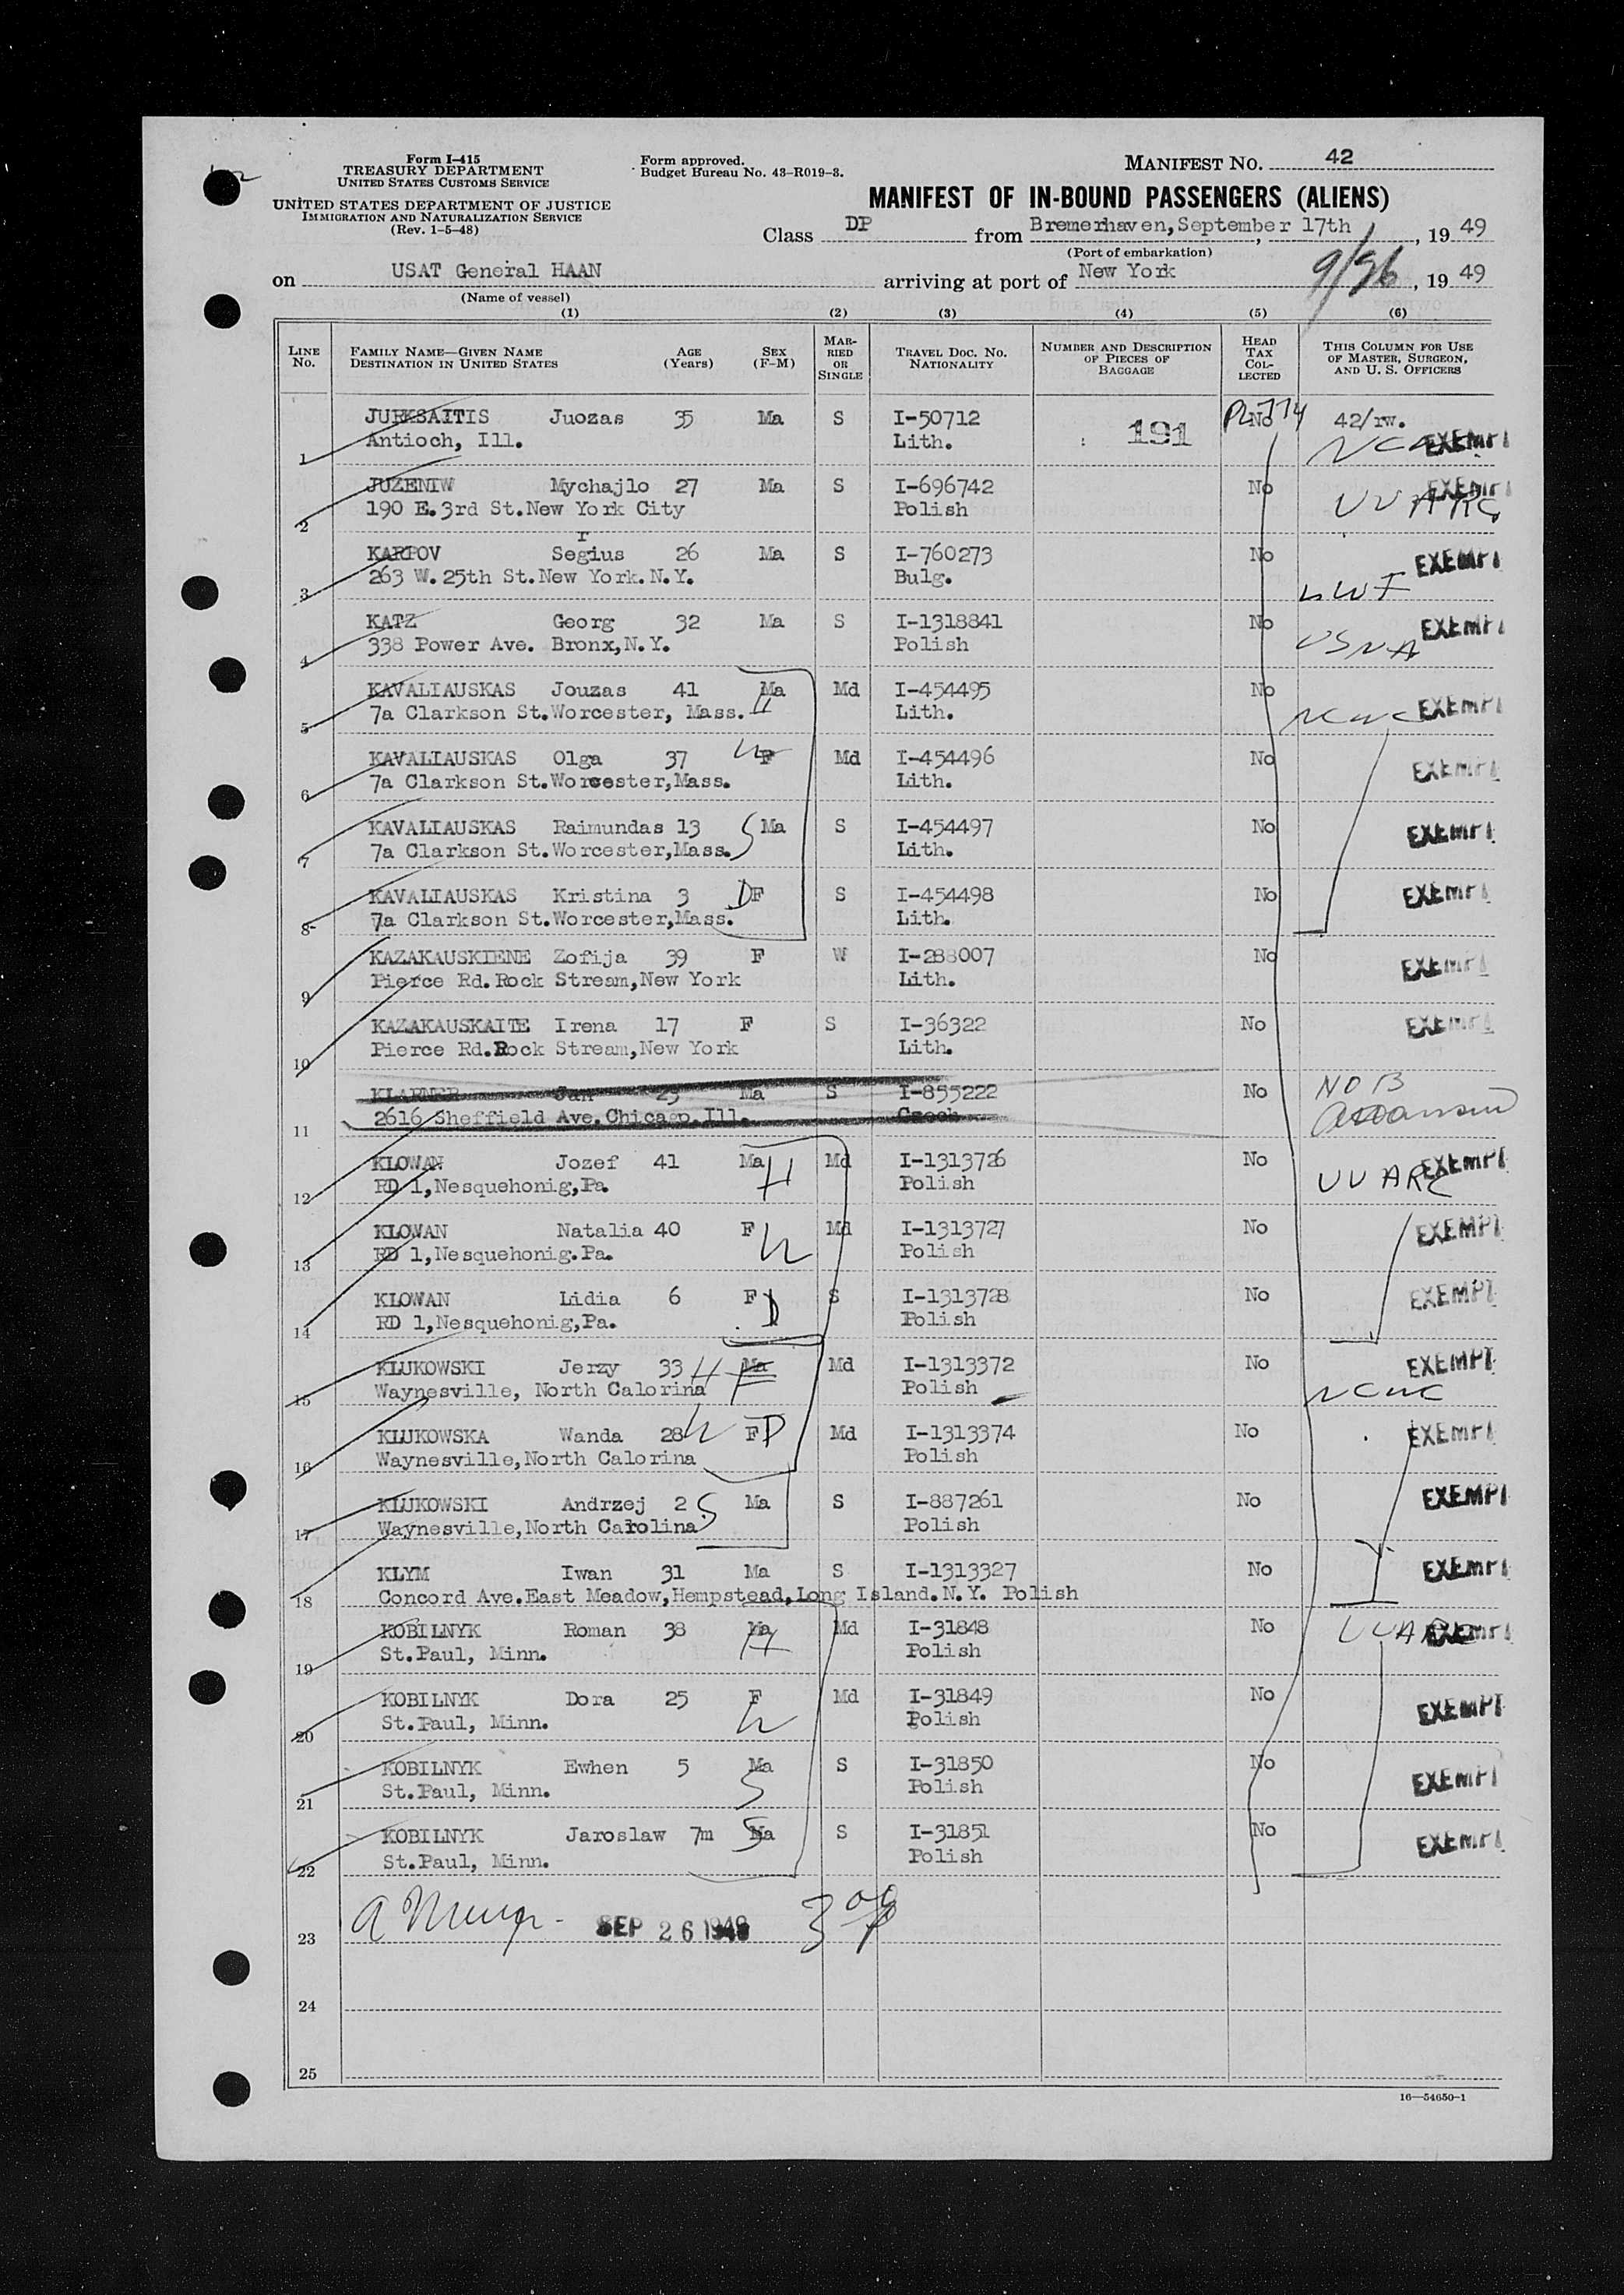 Form I-415
TREASURY DEPARTMENT
UNITED STATES CUSTOMS SERVICE
UNITED STATES DEPARTMENT OF JUSTICE
IMMIGRATION AND NATURALIZATION SERVICE
(Rev. 1-5-48)
Form approved.
Budget Bureau No. 43-R019-3.
MANIFEST NO. 42
MANIFEST OF IN-BOUND PASSENGERS (ALIENS)
Class DP from Bremerhaven, September 17th, 1949
(Port of embarkation)
on USAT General HAAN arriving at port of New York 9/26, 1949
(Name of vessel)
(1) (2) (3) (4) (5) (6)
LINE NO. FAMILY NAME—GIVEN NAME DESTINATION IN UNITED STATES AGE (Years) SEX (F-M) MARRIED OR SINGLE TRAVEL DOC. NO. NATIONALITY NUMBER AND DESCRIPTION OF PIECES OF BAGGAGE HEAD TAX COLLECTED THIS COLUMN FOR USE OF MASTER, SURGEON, AND U. S. OFFICERS
JURKSAITIS Juozas 35 Ma S I-50712 191 No PL774 42/rw.
1 Antioch, Ill. Lith. EXEMPT
JUZENIW Mychajlo 27 Ma S I-696742 No EXEMPT
2 190 E.3rd St.New York City Polish UUARC
r
KARPOV Segius 26 Ma S I-760273 No EXEMPT
3 263 W.25th St.New York.N.Y. Bulg. LWF
KATZ Georg 32 Ma S I-1318841 No EXEMPT
4 338 Power Ave. Bronx,N.Y. Polish USNA
KAVALIAUSKAS Jouzas 41 Ma H Md I-454495 No EXEMPT
5 7a Clarkson St.Worcester, Mass. Lith. NCWC
KAVALIAUSKAS Olga 37 W F Md I-454496 No EXEMPT
6 7a Clarkson St.Worcester,Mass. Lith.
KAVALIAUSKAS Raimundas 13 S Ma S I-454497 No EXEMPT
7 7a Clarkson St.Worcester,Mass. Lith.
KAVALIAUSKAS Kristina 3 D F S I-454498 No EXEMPT
8 7a Clarkson St.Worcester,Mass. Lith.
KAZAKAUSKIENE Zofija 39 F W I-288007 No EXEMPT
9 Pierce Rd.Rock Stream,New York Lith.
KAZAKAUSKAITE Irena 17 F S I-36322 No EXEMPT
10 Pierce Rd.Rock Stream,New York Lith.
Jan 25 Ma S I-855222 No NOB
11 2616 Sheffield Ave.Chicago.Ill. Czech
KLOWAN Jozef 41 Ma H Md I-1313726 No EXEMPT
12 RD 1,Nesquehonig,Pa. Polish UUARC
KLOWAN Natalia 40 F W Md I-1313727 No EXEMPT
13 RD 1,Nesquehonig.Pa. Polish
KLOWAN Lidia 6 F D S I-1313728 No EXEMPT
14 RD 1,Nesquehonig,Pa. Polish
KLUKOWSKI Jerzy 33 H Ma F Md I-1313372 No EXEMPT
15 Waynesville, North Calorina Polish NCWC
KLUKOWSKA Wanda 28 W F D Md I-1313374 No EXEMPT
16 Waynesville,North Calorina Polish
KLUKOWSKI Andrzej 2 S Ma S I-887261 No EXEMPT
17 Waynesville,North Carolina Polish
KLYM Iwan 31 Ma S I-1313327 No EXEMPT
18 Concord Ave.East Meadow,Hempstead,Long Island.N.Y. Polish
KOBILNYK Roman 38 Ma H Md I-31848 No UUARC EXEMPT
19 St.Paul, Minn. Polish
KOBILNYK Dora 25 F W Md I-31849 No EXEMPT
20 St.Paul, Minn. Polish
KOBILNYK Ewhen 5 Ma S S I-31850 No EXEMPT
21 St.Paul, Minn. Polish
KOBILNYK Jaroslaw 7m S Ma S I-31851 No EXEMPT
22 St.Paul, Minn. Polish
23 SEP 26 1949
24
25
16—54650-1